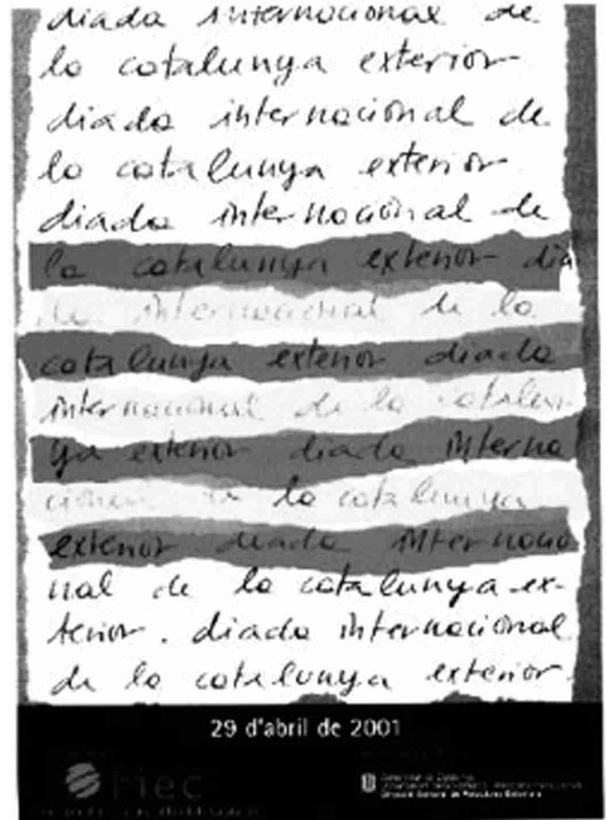 diada internacional de
la catalunya exterior
diada internacional de
la catalunya exterior
diada internacional de
la catalunya exterior dia
da internacional de la
catalunya exterior diada
internacional de la catalun
ya exterior diada interna
cional de la catalunya
exterior diada internacio
nal de la catalunya ex-
terior. diada internacional
de la catalunya exterior.
29 d'abril de 2001
fiec
Generalitat de Catalunya